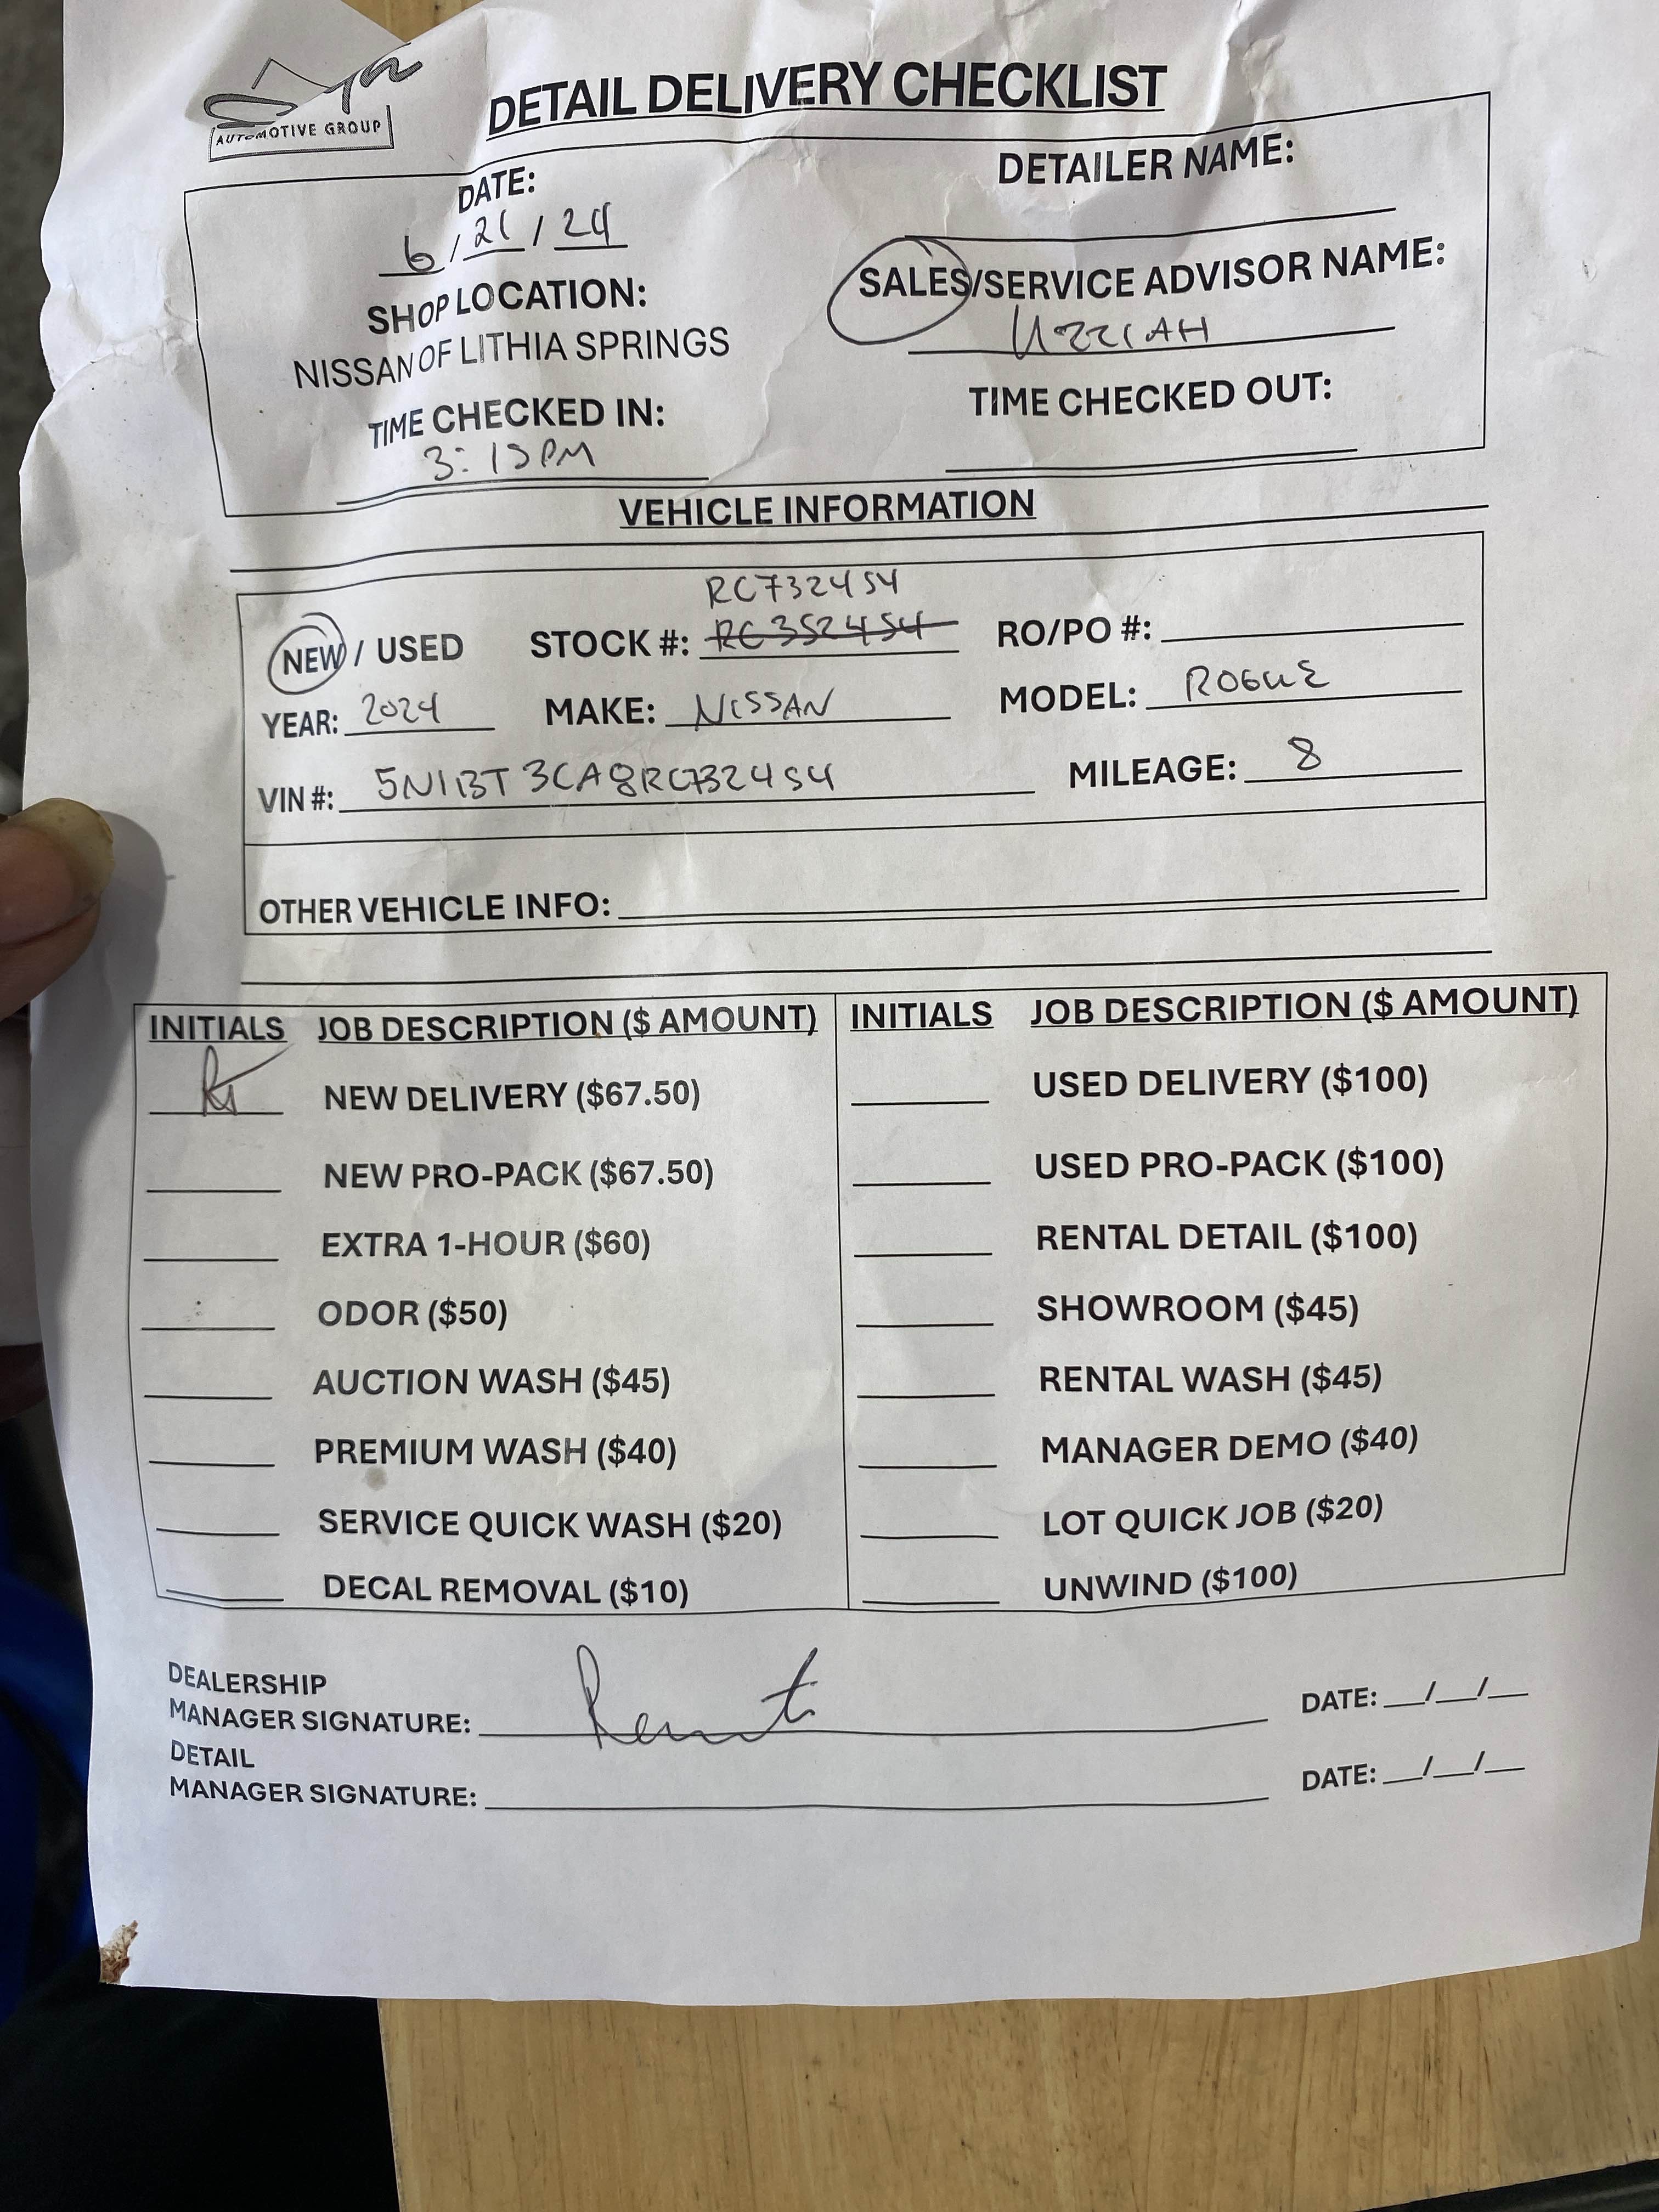 AUTOMOTIVE GROUP
DETAIL DELIVERY CHECKLIST
DATE:
6/21/24
SHOP LOCATION:
NISSAN OF LITHIA SPRINGS
TIME CHECKED IN:
3:15PM
DETAILER NAME:
SALES/SERVICE ADVISOR NAME:
UZZIAH
TIME CHECKED OUT:
VEHICLE INFORMATION
RC732454
NEW / USED STOCK #: RC352454 RO/PO #:
YEAR: 2024 MAKE: NISSAN MODEL: ROGUE
VIN #: 5N1BT3CA8RC732454 MILEAGE: 8
OTHER VEHICLE INFO:
INITIALS JOB DESCRIPTION ($ AMOUNT) INITIALS JOB DESCRIPTION ($ AMOUNT)
NEW DELIVERY ($67.50) USED DELIVERY ($100)
NEW PRO-PACK ($67.50) USED PRO-PACK ($100)
EXTRA 1-HOUR ($60) RENTAL DETAIL ($100)
ODOR ($50) SHOWROOM ($45)
AUCTION WASH ($45) RENTAL WASH ($45)
PREMIUM WASH ($40) MANAGER DEMO ($40)
SERVICE QUICK WASH ($20) LOT QUICK JOB ($20)
DECAL REMOVAL ($10) UNWIND ($100)
DEALERSHIP
MANAGER SIGNATURE: DATE: __/__/__
DETAIL
MANAGER SIGNATURE: DATE: __/__/__